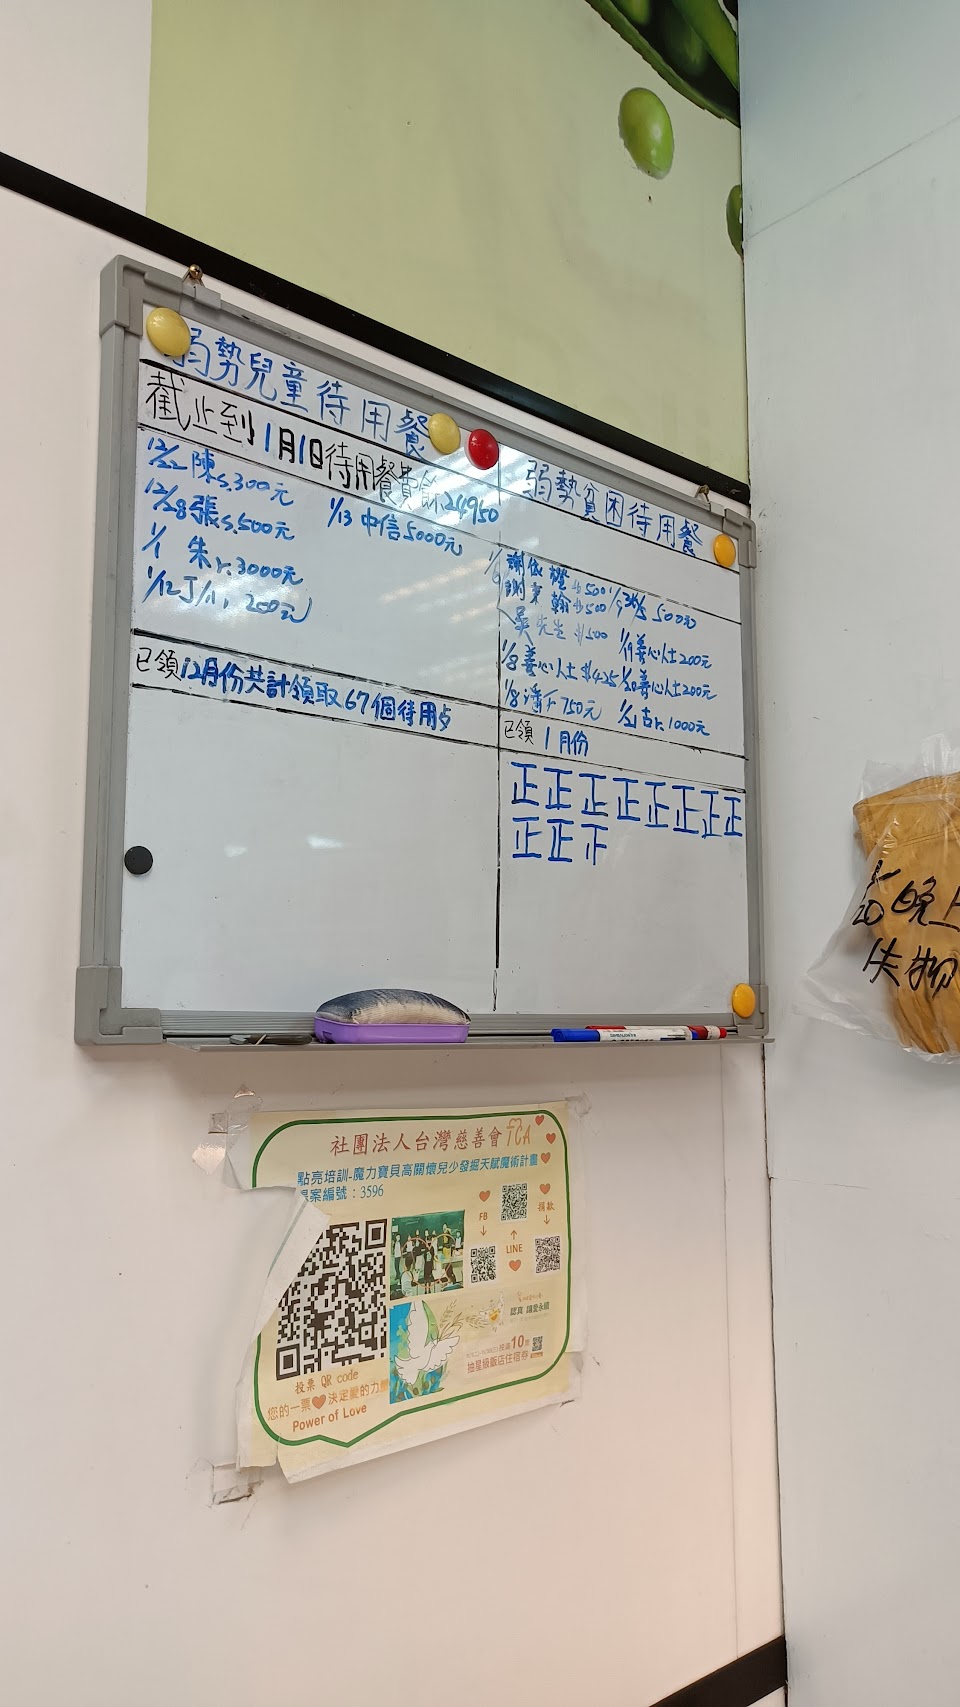 弱勢兒童待用餐
截止到1月1日待用餐費餘24950
12/22 陳s.300元
12/28張s.500元
1/13 中信5000元
1/1 朱r.3000元
1/12 200元
已領12月份共計領取67個待用
弱勢貧困待用餐
$500
$500
500元
吳先生 $500
1/19善心人士200元
1/8善心人士$425
1/20善心人士200元
1/8潘r 750元
1/21古r.1000元
已領 1月份
正正正正正正正正
正正
晚上
失物
社團法人台灣慈善會TCA
點亮培訓-魔力寶貝高關懷兒少發掘天賦魔術計畫
案編號：3596
FB
LINE
捐款
認真 讓愛永續
抽滿10
抽星級飯店住宿券
投票 QR code
您的一票 決定愛的力量
Power of Love